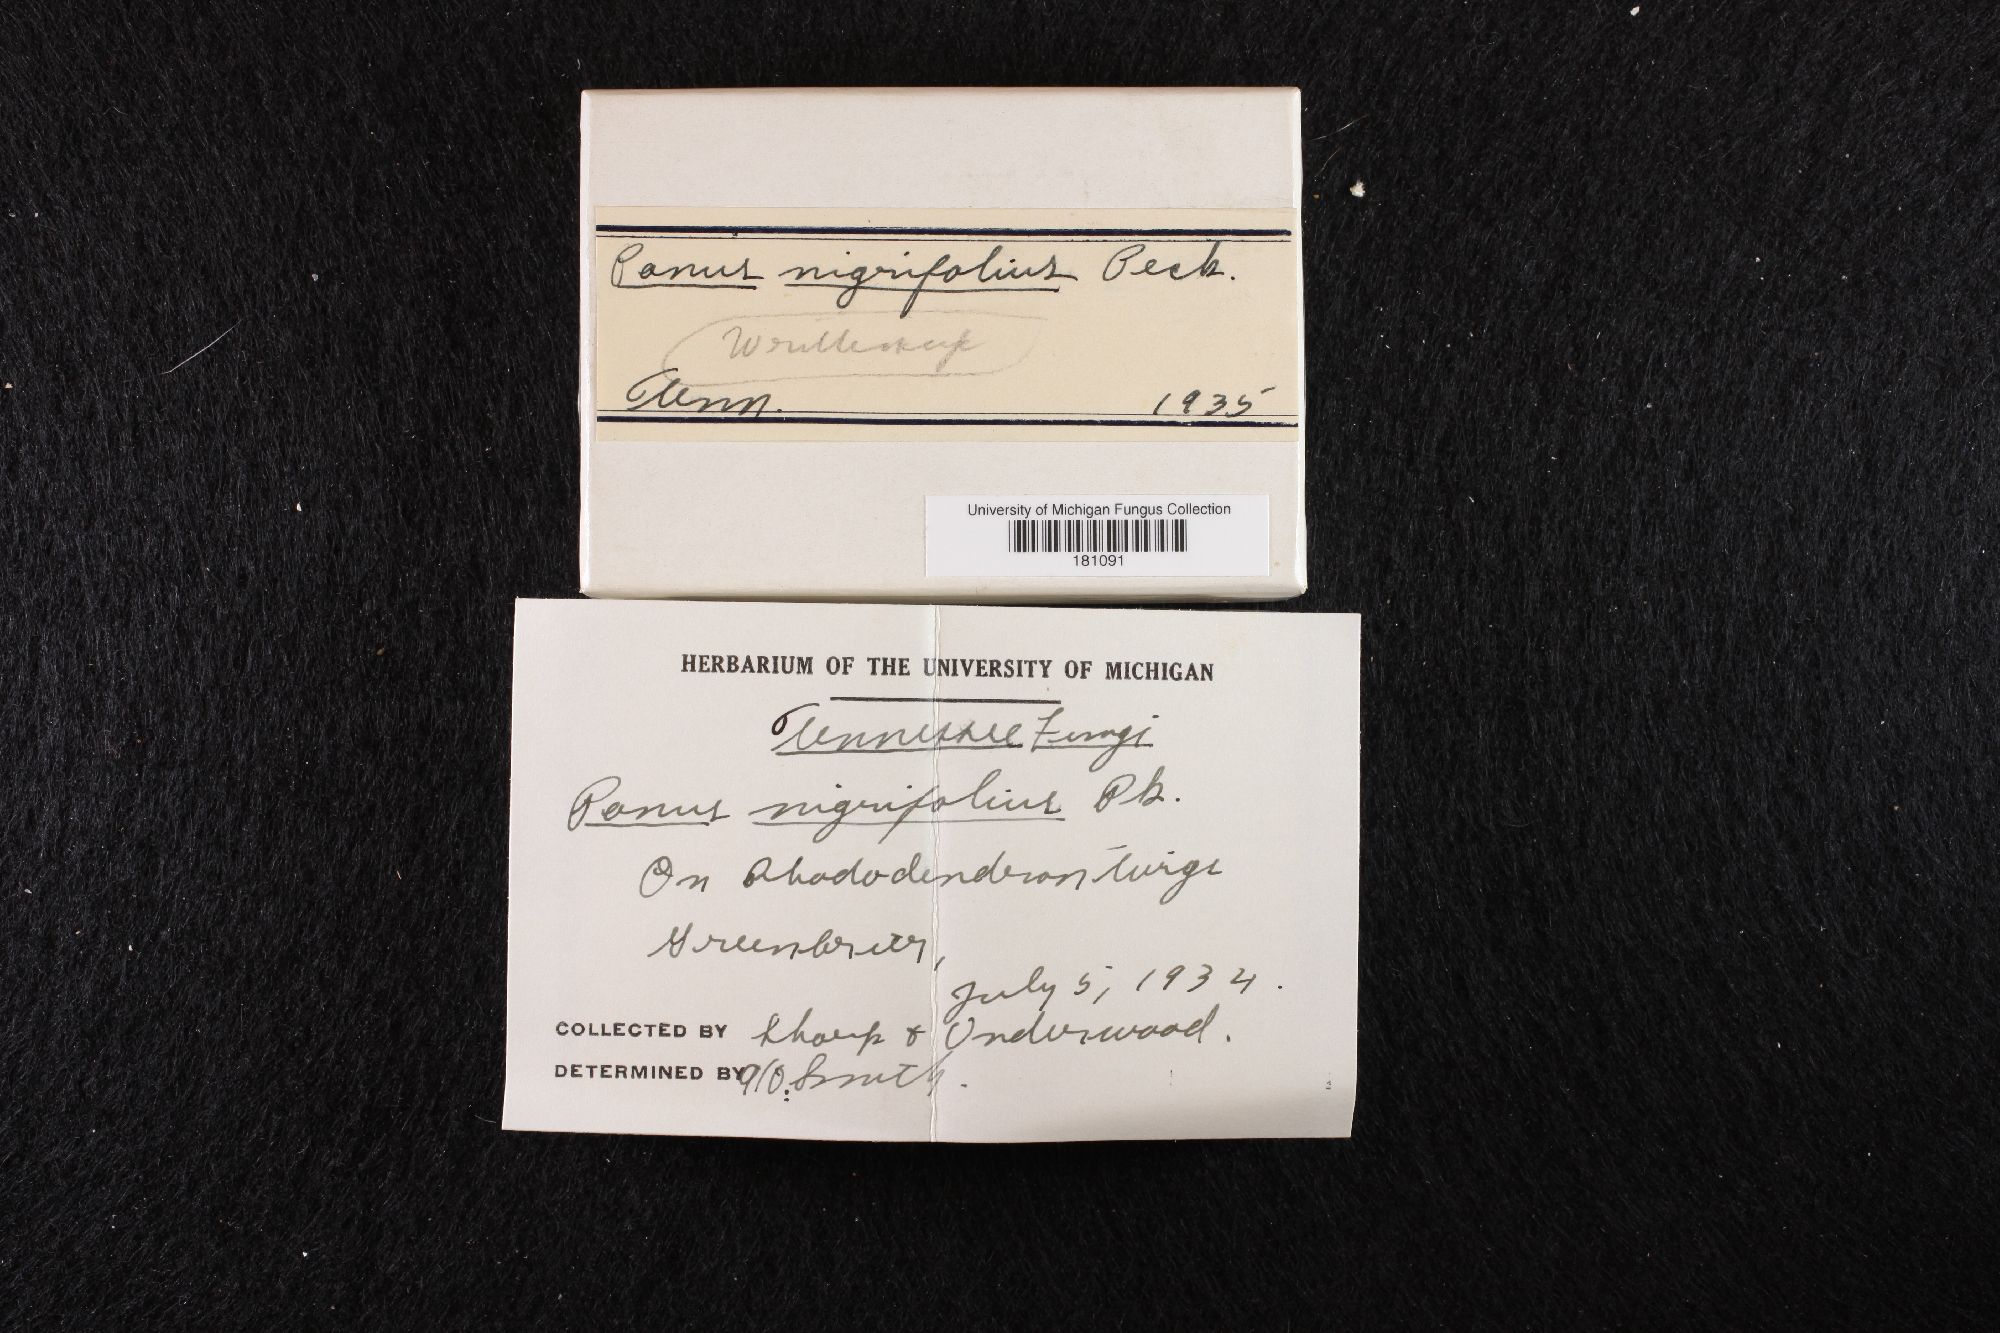 Panus nigrifolius Peck.
Written up
Tenn. 1935
University of Michigan Fungus Collection
181091
HERBARIUM OF THE UNIVERSITY OF MICHIGAN
Tennessee Fungi
Panus nigrifolius Pk.
On Rhododendron twigs
Greenbrier,
July 5, 1934.
COLLECTED BY Sharp & Underwood.
DETERMINED BY Smith.